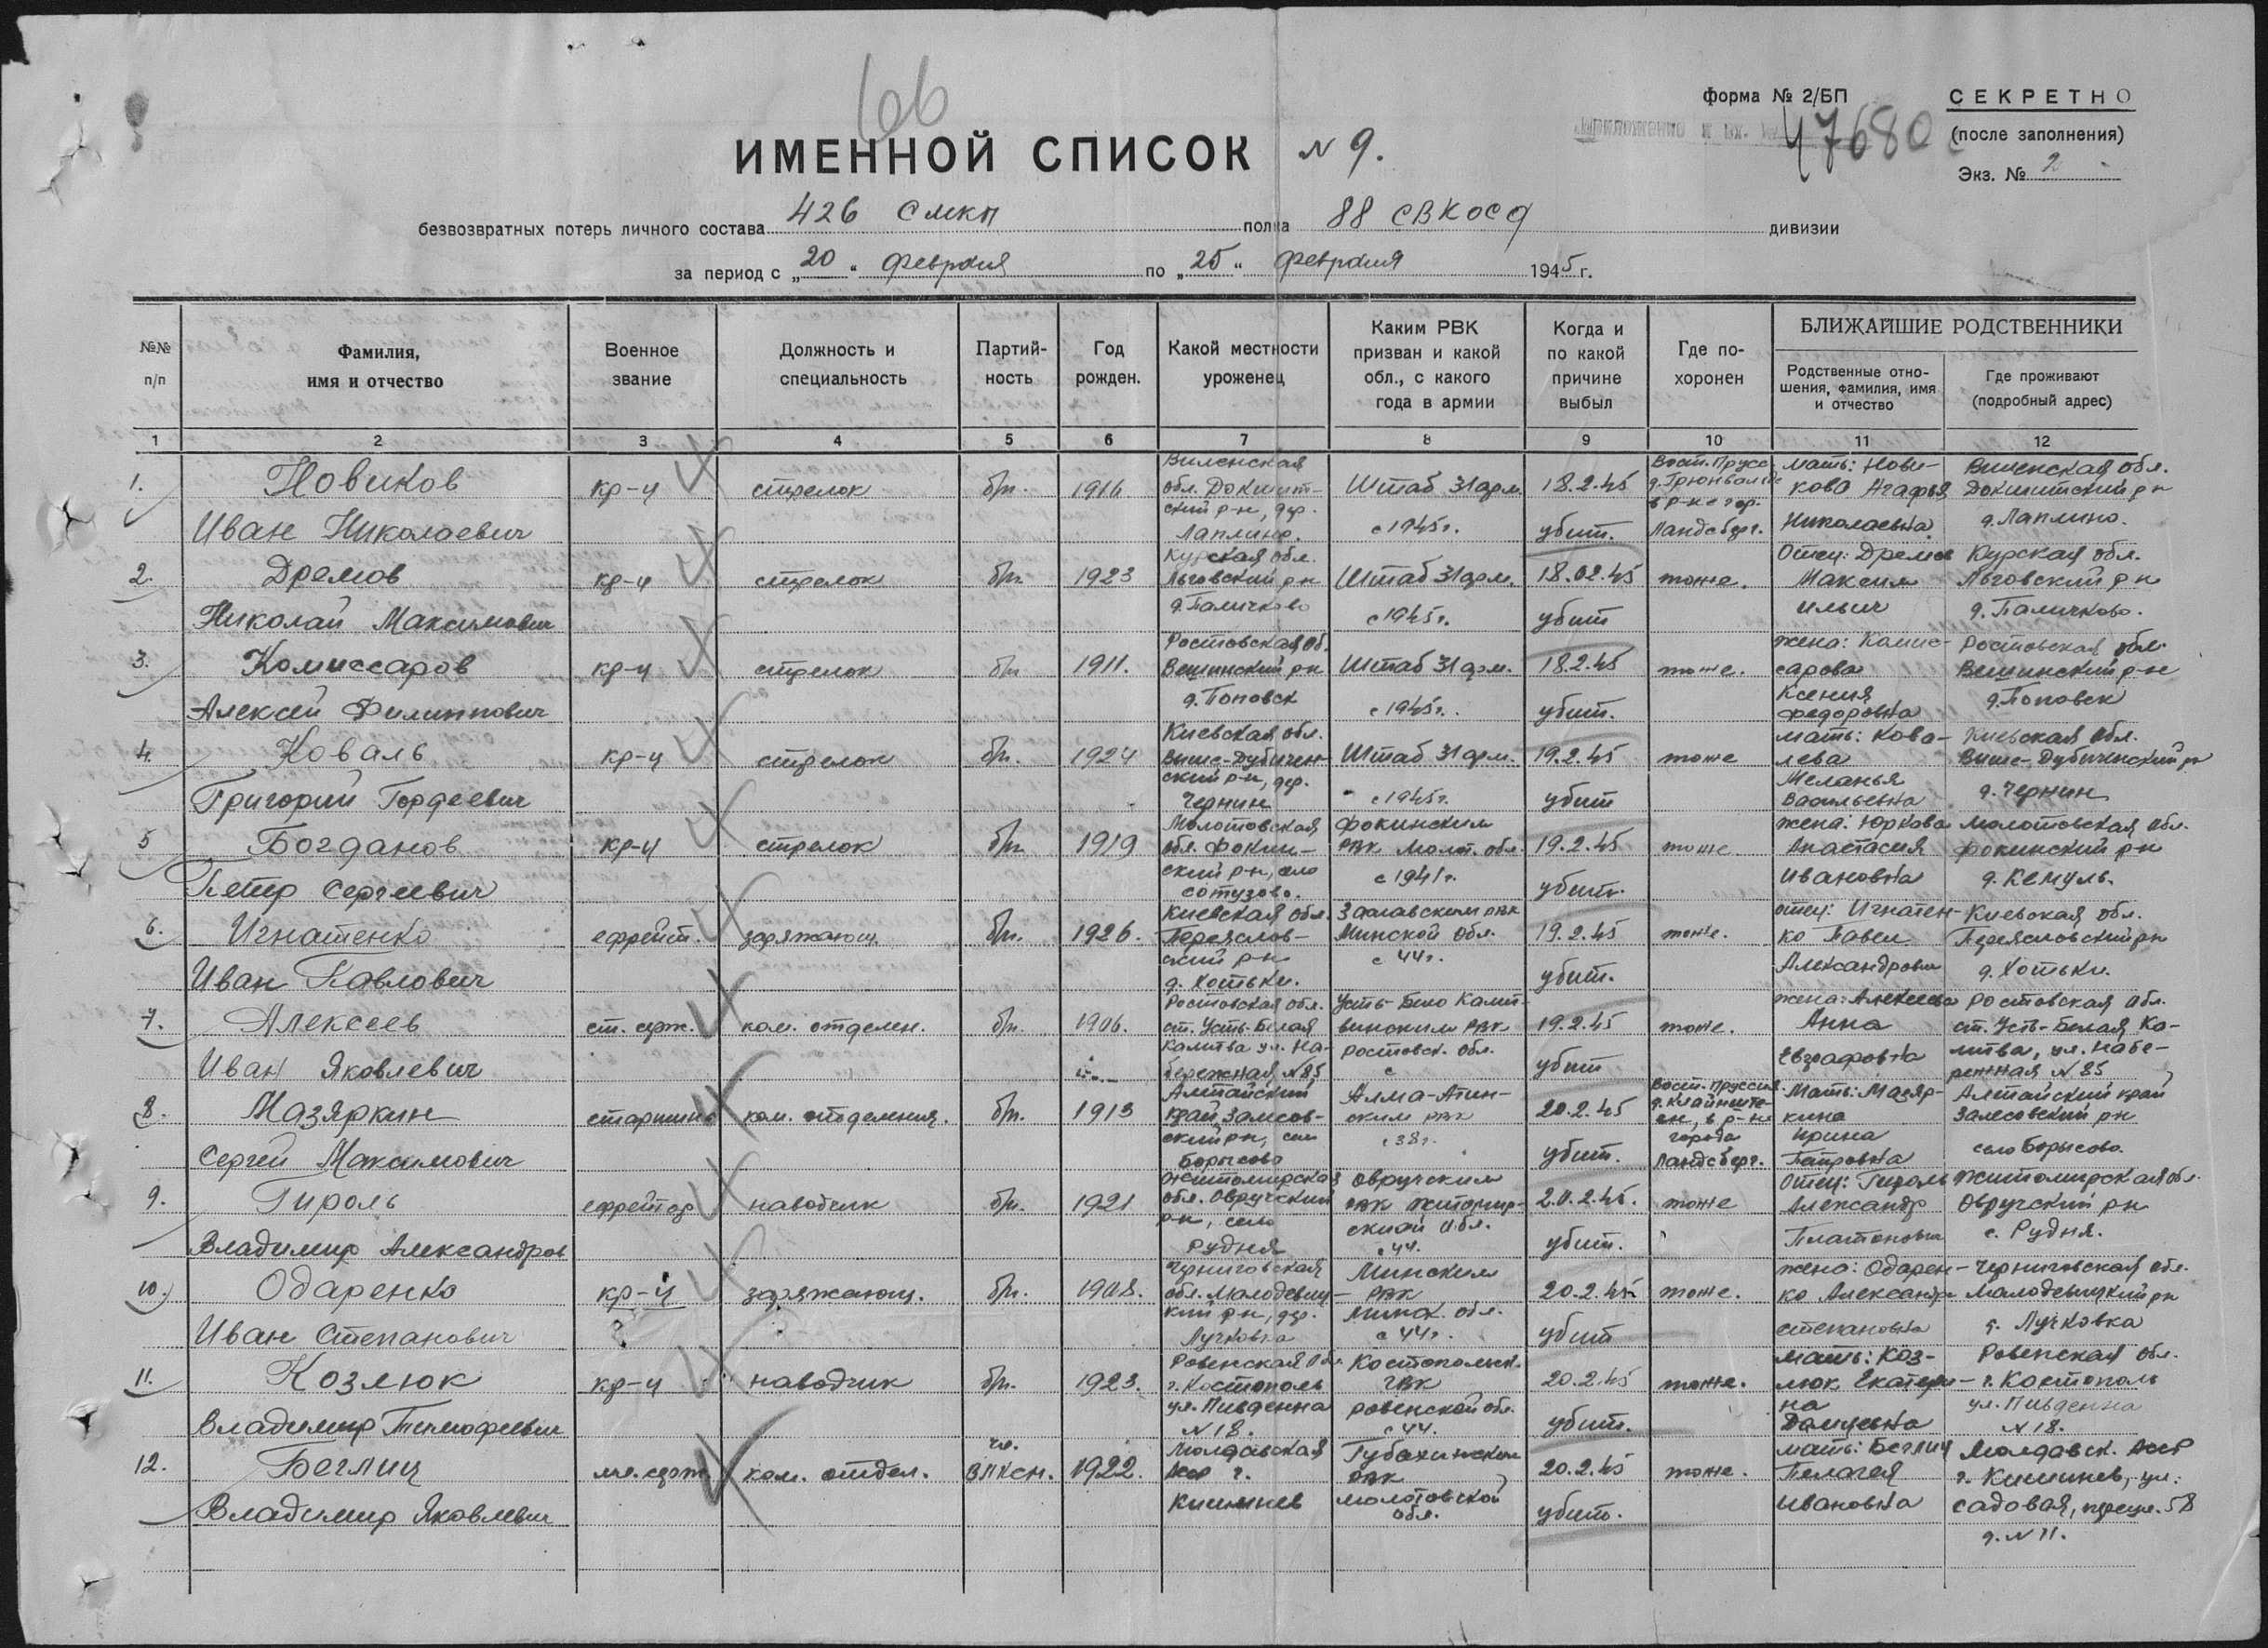 66
Форма № 2/БП
СЕКРЕТНО
47680
(после заполнения)
Экз. № 2
ИМЕННОЙ СПИСОК № 9.
безвозвратных потерь личного состава 426 полка 88 дивизии
за период с „20" февраля по „25" февраля 1945 г.
№№ п/п
Фамилия, имя и отчество
Военное звание
Должность и специальность
Партий-ность
Год рожден.
Какой местности уроженец
Каким РВК призван и какой обл., с какого года в армии
Когда и по какой причине выбыл
Где по-хоронен
БЛИЖАЙШИЕ РОДСТВЕННИКИ
Родственные отно-шения, фамилия, имя и отчество
Где проживают (подробный адрес)
1 2 3 4 5 6 7 8 9 10 11 12
1. Новиков Иван Николаевич кр-ц стрелок б/п. 1916 Виленская обл. Докшит-ский р-н, дер. Лаплино. Штаб 31 арм. с 1945г. 18.2.45 убит. Вост. Прусс. д. Грюнвальде в р-не гор. Ландсберг. мать: Нови-кова Агафья Николаевна Виленская обл. Докшитский р-н д. Лаплино.
2. Дремов Николай Максимович кр-ц стрелок б/п. 1923 Курская обл. Льговский р-н д. Паличково Штаб 31 арм. с 1945г. 18.02.45 убит тоже. Отец: Дремов Максим Ильич Курская обл. Льговский р-н д. Паличково.
3. Комиссаров Алексей Филиппович кр-ц стрелок б/п 1911. Ростовская об. Вешинский р-н д. Поповск Штаб 31 арм. с 1945г. 18.2.45 убит. тоже. жена: Комис-сарова Ксения Федоровна Ростовская обл. Вешинский р-н д. Поповск
4. Коваль Григорий Гордеевич кр-ц стрелок б/п. 1924 Киевская обл. Выше-Дубичен-ский р-н, дер. Чернин Штаб 31 арм. с 1945г. 19.2.45 убит тоже мать: Кова-лева Меланья Васильевна Киевская обл. Выше-Дубиченский р-н д. Чернин
5 Богданов Петр Сергеевич кр-ц стрелок б/п 1919 Молотовская обл. Фокин-ский р-н, село Сотузово. Фокинским РВК Молот. обл. с 1941г. 19.2.45 убит. тоже жена: Юркова Анастасия Ивановна Молотовская обл. Фокинский р-н д. Кемуль.
6. Игнатенко Иван Павлович ефрейт. заряжающ. б/п. 1926. Киевская обл. Переяслов-ский р-н д. Хотьки. РВК Минской обл. с 44г. 19.2.45 убит. тоже. отец: Игнатен-ко Павел Александрович Киевская обл. Переясловский р-н д. Хотьки.
7. Алексеев Иван Яковлевич ст. серж. ком. отделен. б/п. 1906. Ростовская обл. ст. Усть-Белая Калитва ул. На-бережная, №85 Усть-Бело Калит-винским РВК Ростовск. обл. с 19.2.45 убит тоже. жена: Алексеева Анна Евграфовна Ростовская обл. ст. Усть-Белая Ка-литва, ул. Набе-режная №85
8. Мазяркин Сергей Максимович старшина ком. отделения. б/п. 1913 Алтайский край, Залесов-ский р-н, село Борисово Алма-Атин-ским РВК с 38г. 20.2.45 убит. Вост. Пруссия. в р-не города Ландсберг. Мать: Мазяр-кина Ирина Петровна Алтайский край Залесовский р-н село Борысово.
9. Гироль Владимир Александров ефрейтор наводчик б/п. 1921 Житомирская обл. Овручский р-н, село Рудня Овручским РВК Житомир-ской обл. с 44. 20.2.45. убит. тоже Отец: Гироль Александр Платонович Житомирская обл. Овручский р-н с. Рудня.
10. Одаренко Иван Степанович кр-ц заряжающ. б/п. 1908. Черниговская обл. Малодевиц-кий р-н, дер. Лучковка Минским РВК Минск. обл. с 44г. 20.2.45 убит тоже. жена: Одарен-ко Александра Степановна Черниговская обл. Малодевицкий р-н д. Лучковка
11. Козлюк Владимир Тимофеевич кр-ц наводчик б/п. 1923. Ровенская обл. г. Костополь ул. Пивденна №18. Костопольск. РВК Ровенской обл. с 44. 20.2.45 убит. тоже. мать: Коз-люк Екатери-на Ровенская обл. г. Костополь ул. Пивденна №18.
12. Беглиц Владимир Яковлевич мл. серж. ком. отдел. чл. ВЛКСМ. 1922. Молдавская АССР г. Кишинев Губахинским РВК Молотовской обл. 20.2.45 убит. тоже. мать: Беглиц Пелагея Ивановна Молдавск. АССР г. Кишинев, ул. Садовая, 58 д. №11.